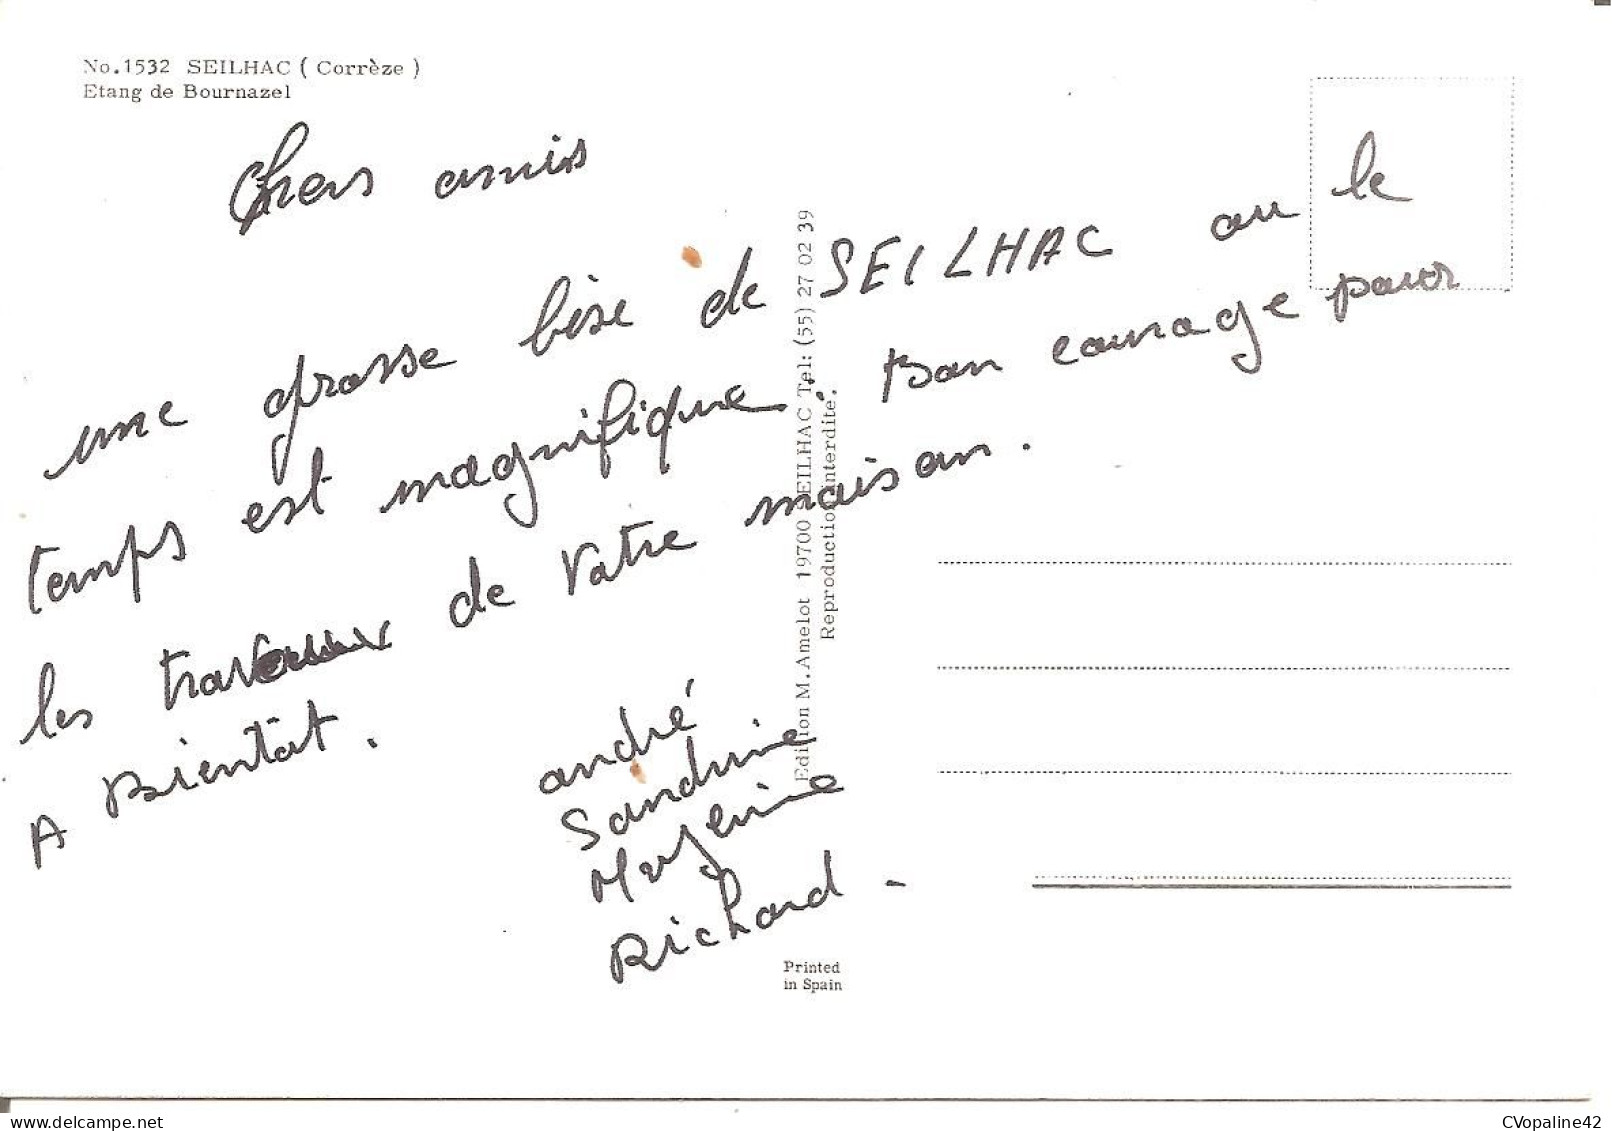 No.1532 SEILHAC ( Corrèze )
Etang de Bournazel
Chers amis
une grosse bise de SEILHAC ou le
temps est magnifique. Bon courage pour
les travaux de votre maison.
A Bientôt.
andré
Sandrine
Richard
Edition M. Amelot 19700 SEILHAC Tel: (55) 27 02 39
Reproduction interdite.
Printed
in Spain
CVopaline42